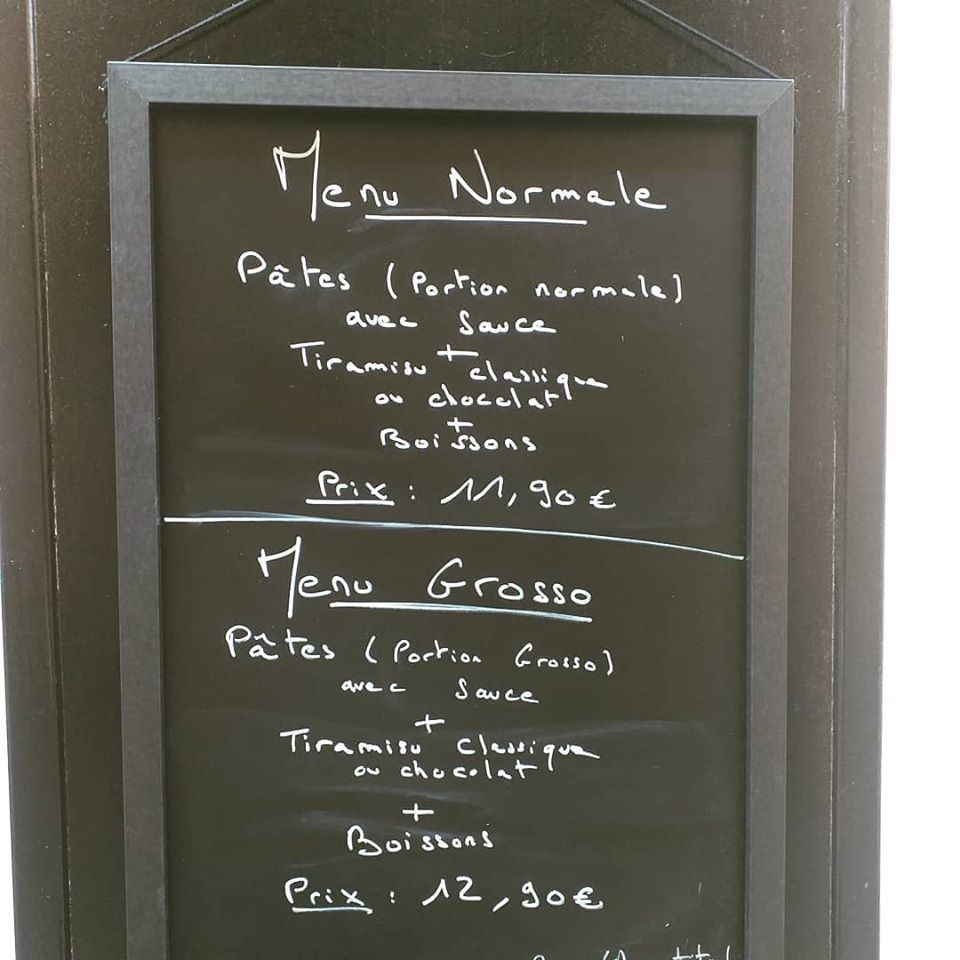 Menu Normale
Pâtes (Portion normale)
avec Sauce
+
Tiramisu classique
ou chocolat
+
Boissons
Prix : 11,90€
Menu Grosso
Pâtes (Portion Grosso)
avec Sauce
+
Tiramisu classique
ou chocolat
+
Boissons
Prix : 12,90€